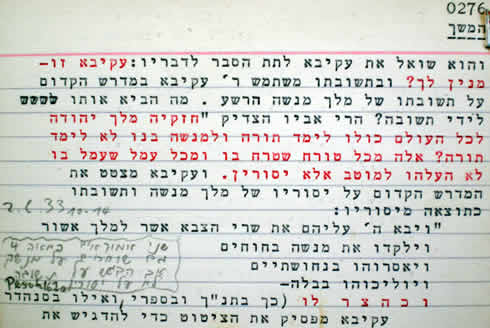 0276
המשך
והוא שואל את עקיבא לתת הסבר לדבריו: עקיבא זו-
מנין לך? ובתשובתו משתמש ר' עקיבא במדרש הקדום
על תשובתו של מלך מנשה הרשע. מה הביא אותו
לידי תשובה? הרי אביו הצדיק "חזקיה מלך יהודה
לכל העולם כולו לימד תורה ולמנשה בנו לא לימד
תורה? אלה מכל טורח שטרח בו ומכל עמל שעמל בו
לא העלהו למוטב אלא יסורין. ועקיבא מצטט את
המדרש הקדום על יסוריו של מלך מנשה ותשובתו
כתוצאה מיסוריו:
"ויבא ה' עליהם את שרי הצבא אשר למלך אשור
וילקדו את מנשה בחוחים
ויאסרוהו בנחושתיים
ויוליכוהו בבלה-
וכהצר לו (כך בתנ"ך ובספרי, ואילו בסנהדר
עקיבא מפסיק את הציטוט כדי להדגיש את
33 10-14